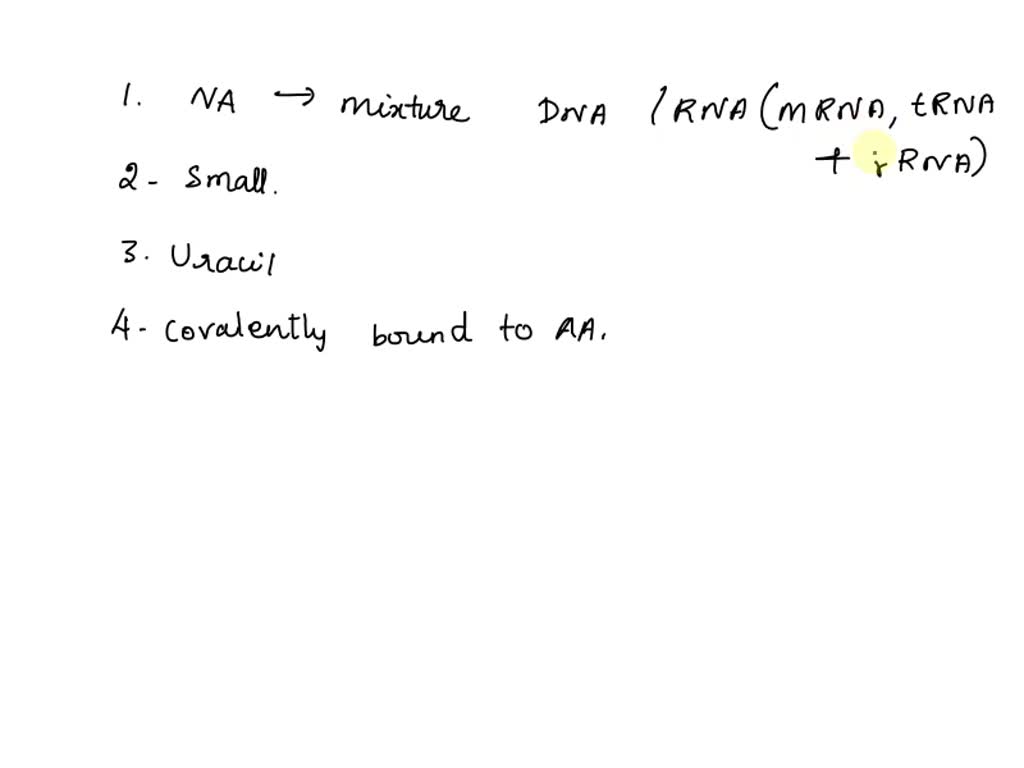 1. NA → mixture DNA / RNA (mRNA, tRNA
+ rRNA)
2 - Small.
3. Uracil
4 - Covalently bound to AA.